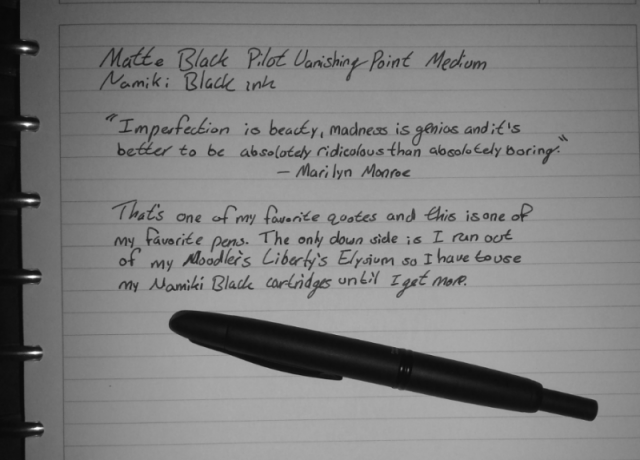 Matte Black Pilot Vanishing Point Medium
Namiki Black ink
"Imperfection is beauty, madness is genius and it's
better to be absolutely ridiculous than absolutely boring."
— Marilyn Monroe
That's one of my favorite quotes and this is one of
my favorite pens. The only down side is I run out
of my Noodler's Liberty's Elysium so I have to use
my Namiki Black cartridges until I get more.